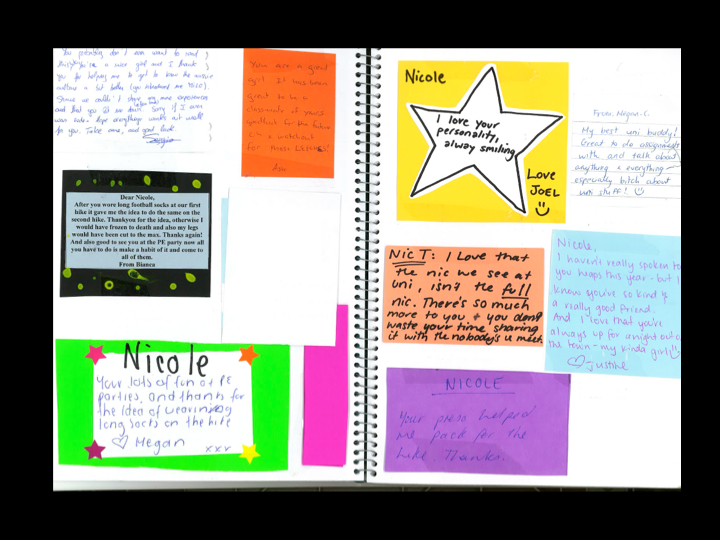 You probably don't even want to read
this, you're a nice girl and I thank
you for helping me to get to know the
and that you
was rude. Hope everything works out well
for you. Take care, and good luck
You are a great
girl. It was been
great to be a
classmate of yours
goodluck for the future
for those
Lisa
Dear Nicole,
After you wore long football socks at our first
hike it gave me the idea to do the same on the
second hike. Thankyou for the idea, otherwise I
would have frozen to death and also my legs
would have been cut to the max. Thanks again!
And also good to see you at the PE party now all
you have to do is make a habit of it and come to
all of them.
From Bianca
Nicole
Your lots of fun at PE
parties, and thanks for
the idea of wearining
long socks on the hike
♡ Megan
xxx
Nicole
I love your
personality,
alway smiling
Love
JOEL
From, Megan.C.
My best uni buddy!
Great to do assignments
with and talk about
anything & everything -
especially bitch about
uni stuff!
Nic T: I Love that
the nic we see at
uni, isn't the full
nic. There's so much
more to you & you don't
waste your time sharing
it with the nobody's u meet.
Nicole,
I haven't really spoken to
you heaps this year - but I
know you're so kind &
a really good friend.
And I love that you're
always up for a night out on
the town - my kinda girl!
♡ Justine
NICOLE
Your press helped
me pack for the
hike. Thanks.